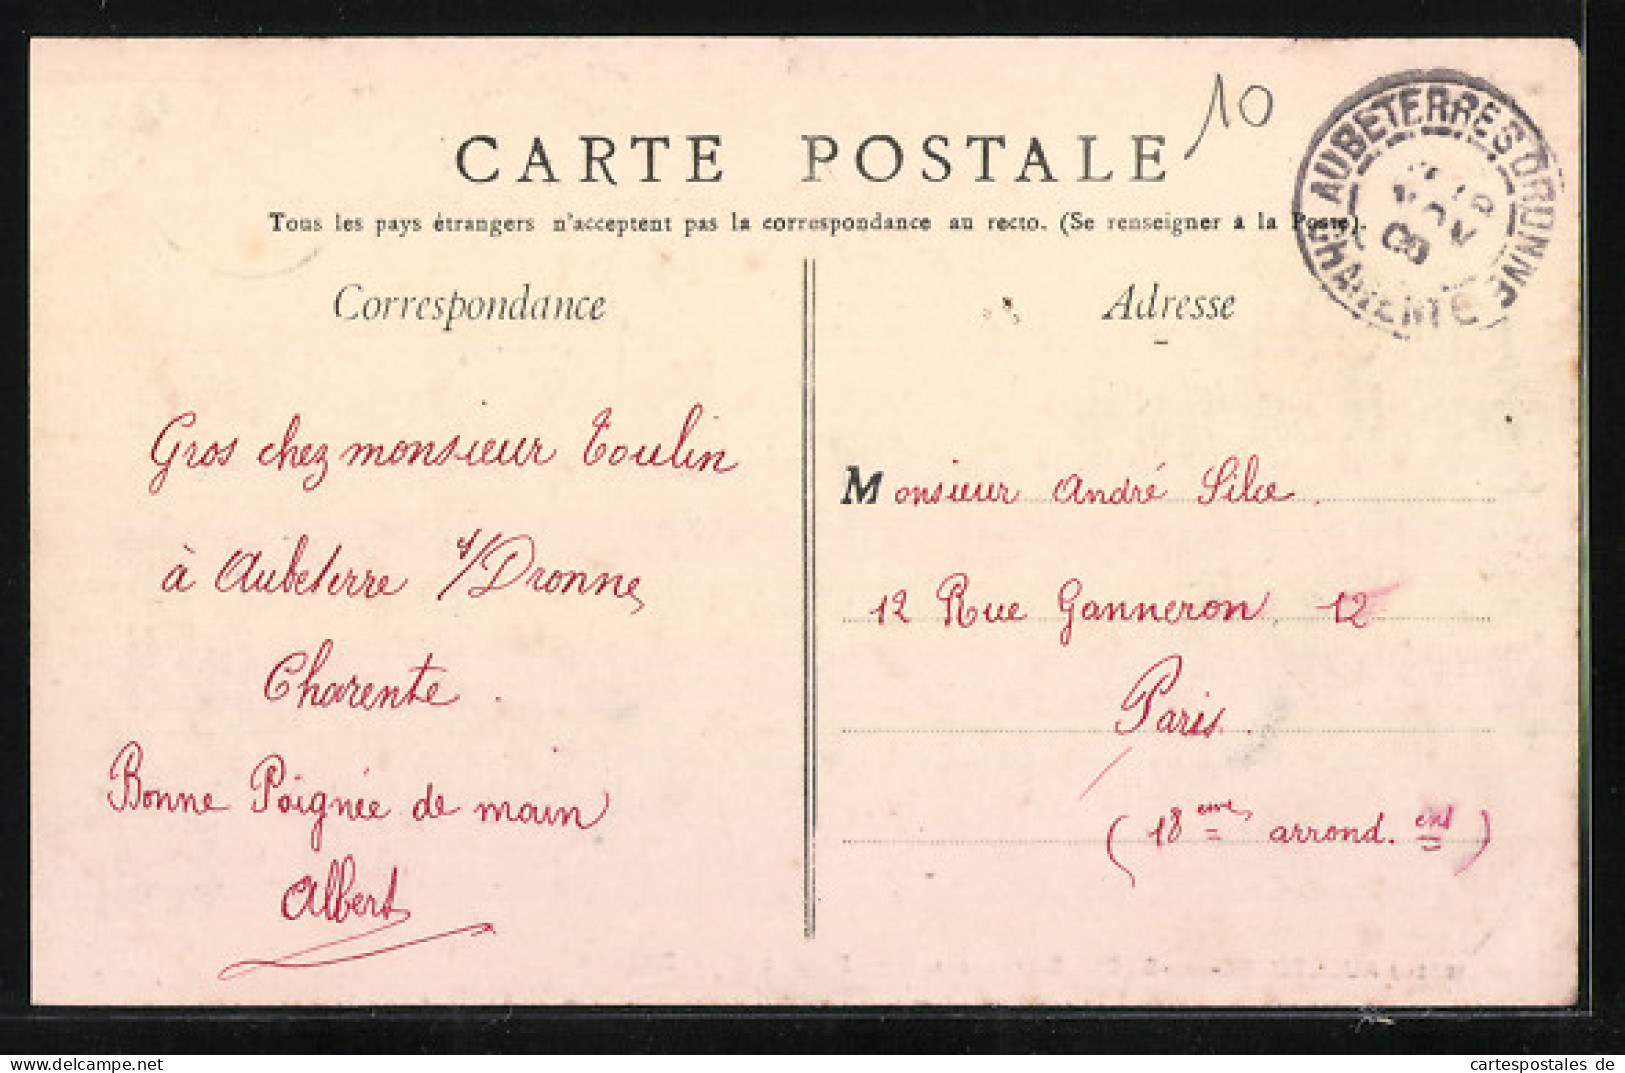 CARTE POSTALE
10
AUBETERRE S DRONNE
CHARENTE
NOV
08
Tous les pays étrangers n'acceptent pas la correspondance au recto. (Se renseigner à la Poste).
Correspondance
Gros chez monsieur Toulin
à Aubeterre s/Dronne
Charente.
Bonne Poignée de main
Albert
Adresse
Monsieur André
12 Rue Ganneron 12
Paris.
(18 eme arrond. ent)
cartespostales de